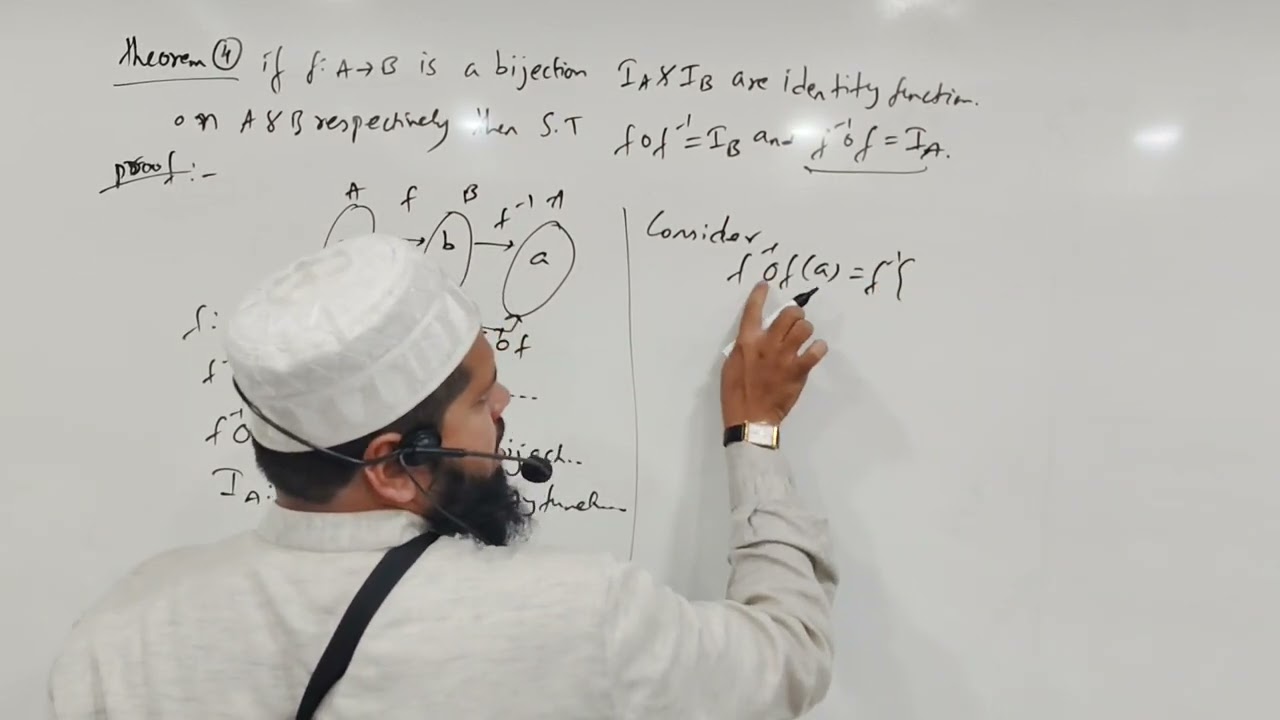 Theorem ④ if f: A→B is a bijection I_A & I_B are identity function.
on A & B respectively then S.T f o f⁻¹ = I_B and f⁻¹ o f = I_A.
Proof:-
A f B f⁻¹ A
b a
o f
f:
f⁻¹ o
I_A:
Consider
f⁻¹ o f(a) = f⁻¹{